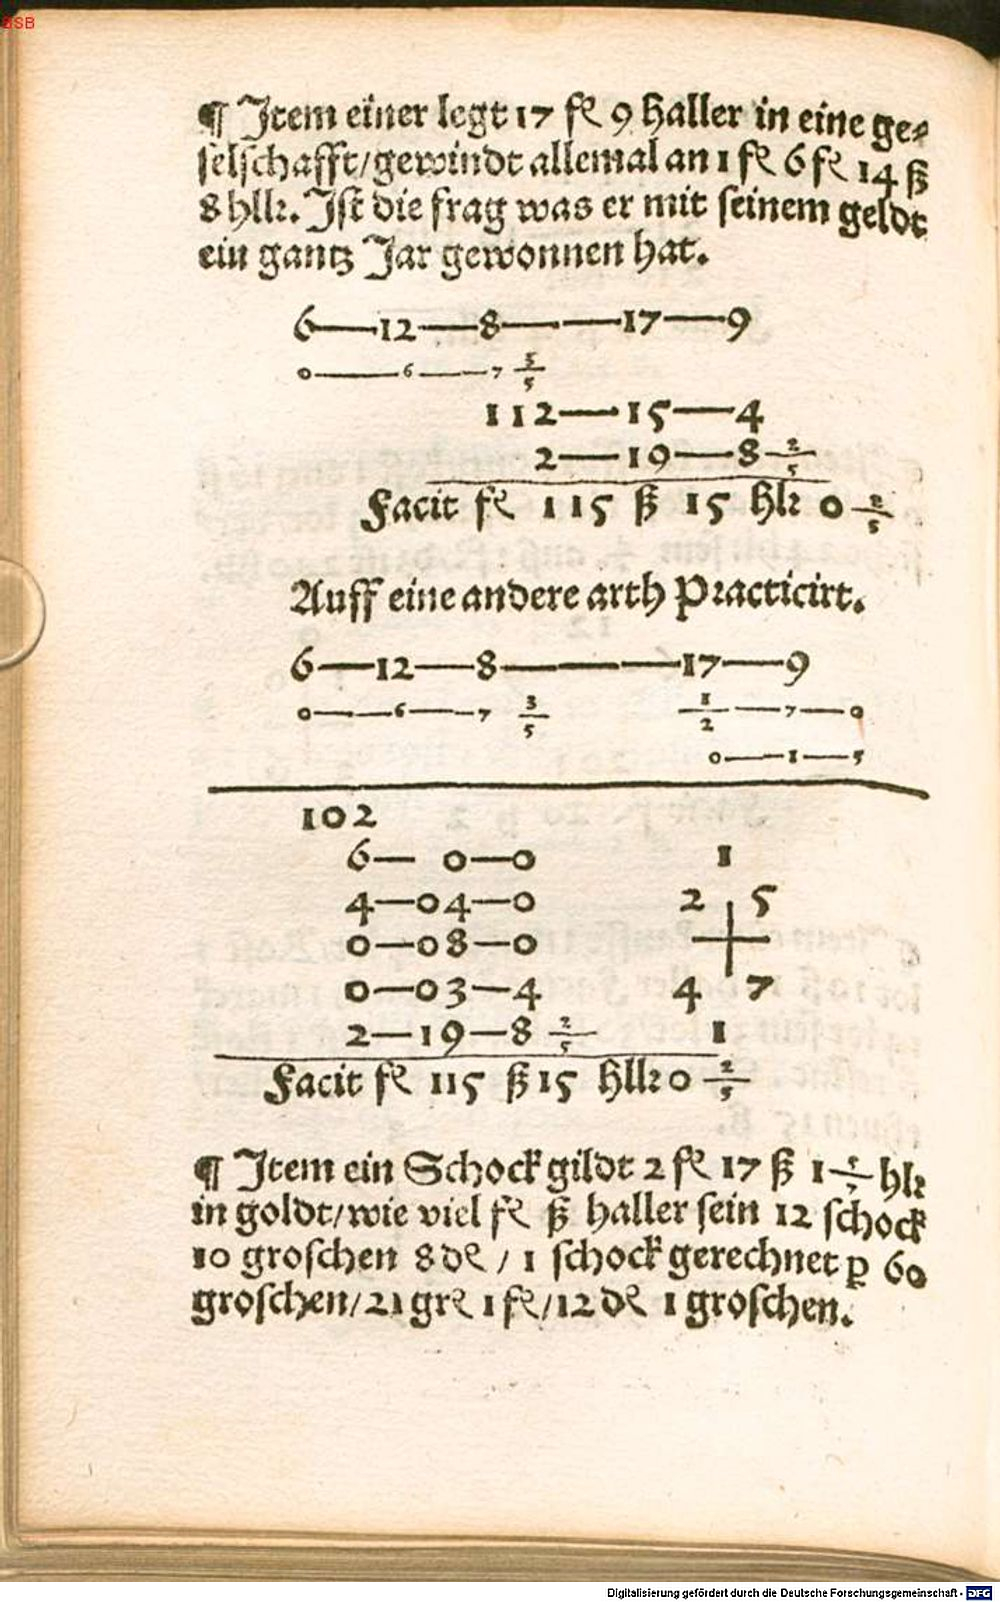 BSB
¶ Item einer legt 17 fl 9 haller in eine ge⸗
selschafft/gewindt allemal an 1 fl 6 fl 14 ß
8 hllr. Ist die frag was er mit seinem geldt
ein gantz Jar gewonnen hat.
6—12—8— —17—9
0—6—7 3/5
112—15—4
2—19—8 2/5
Facit fl 115 ß 15 hlr 0 2/5
Auff eine andere arth Practicirt.
6—12—8———17—9
0—6—7 3/5 1/2—7—0
0—1—5
102
6— 0—0 1
4—04—0 2 5
0—08—0
0—03—4 4 7
2—19—8 2/5 1
Facit fl 115 ß 15 hllr 0 2/5
¶ Item ein Schock gildt 2 fl 17 ß 1 5/7 hlr
in goldt/wie viel fl ß haller sein 12 schock
10 groschen 8 de / 1 schock gerechnet p 60
groschen/21 gre 1 fl/12 de 1 groschen.
Digitalisierung gefördert durch die Deutsche Forschungsgemeinschaft - DFG